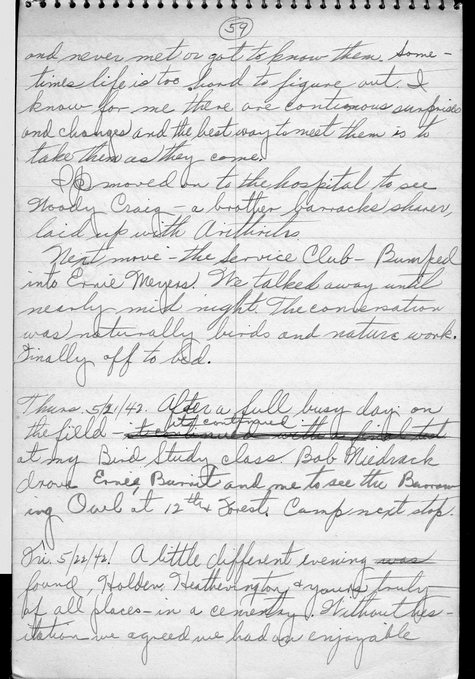 59
and never met or got to know them. Some-
times life is too hard to figure out. I
know for me there are continuous surprises
and changes and the best way to meet them is to
take them as they come.
I moved on to the hospital to see
Woody Craig - a brother barracks sharer,
laid up with Arthritis
Next move - the Service Club - Bumped
into Ernie Meyers. We talked away until
nearly mid night. The conversation
was naturally birds and nature work.
Finally off to bed.
Thurs. 5/21/42. After a full busy day on
the field - it continued
at my Bird Study class. Bob Niedrack
drove Ernie, Burnit and me to see the Burrow
ing Owl at 12th & Forest. Camp next stop.
Fri. 5/22/42! A little different evening was
found, Holden, Heatherington, & yours truly -
of all places - in a cemetary. Without hes-
itation we agreed we had an enjoyable